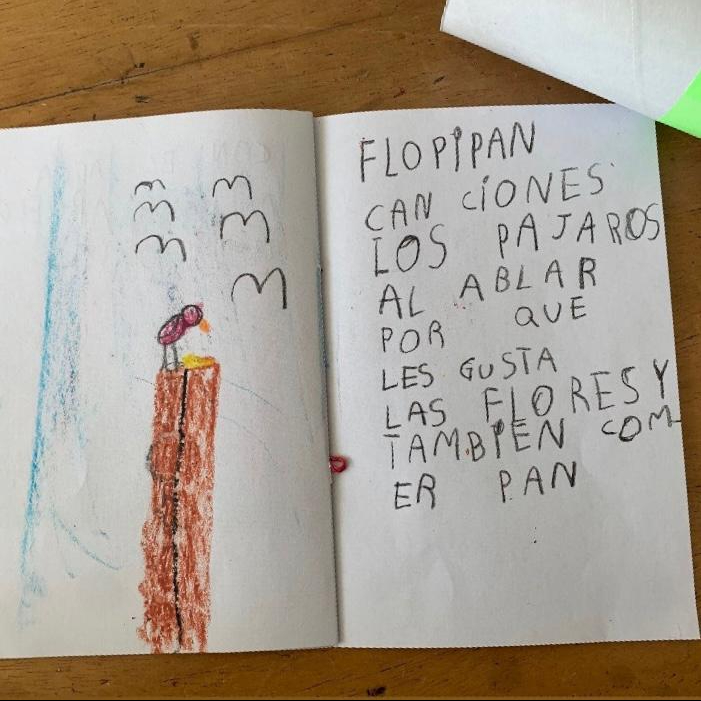 FLOPIPAN
CAN CIONES
LOS PAJAROS
AL ABLAR
POR QUE
LES GUSTA
LAS FLORES Y
TAMBIEN COM-
ER PAN